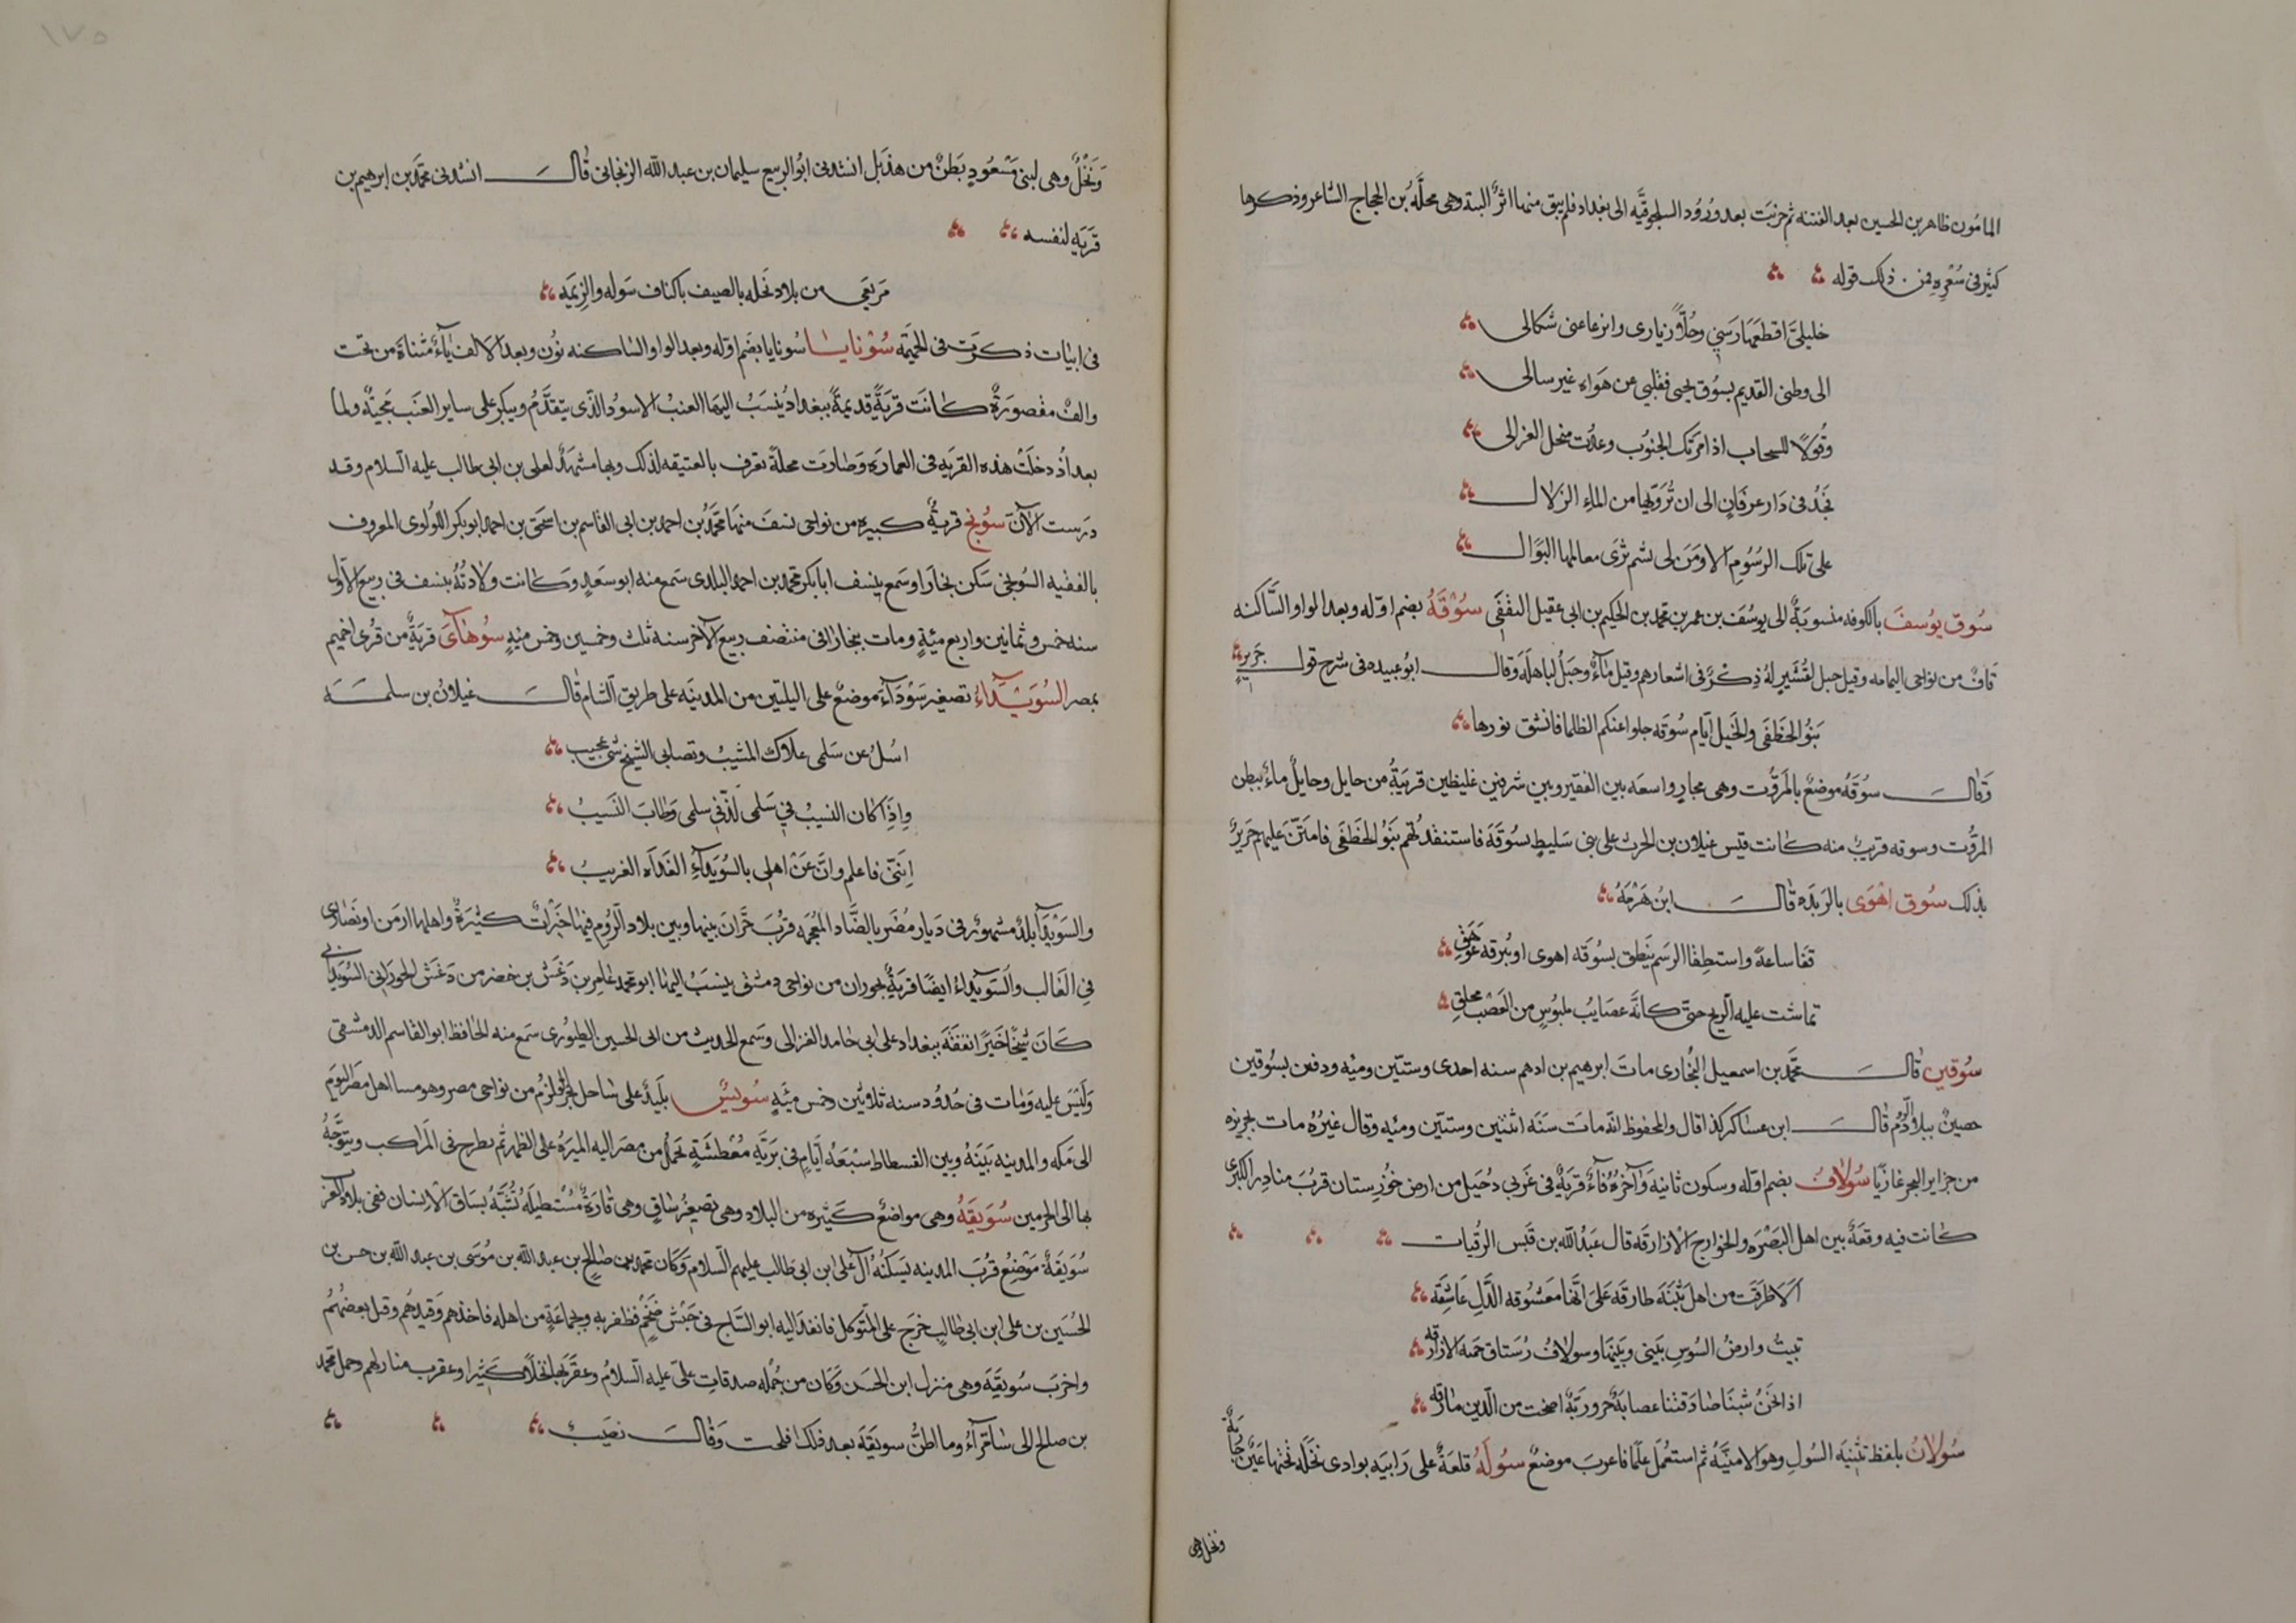 المامون طاهر بن الحسين بعد الفتنه ثم خربت بعد ورُود السلجوقيَّه الى بغداد فلم يبق منها اثرٌ البتة وهى محلَّةُ بن الحجاج الشاعر وذكرها
كثير فى شعرِهِ فمن ذلك قوله
خليلىَّ اقطعَهَا رَسَنِى وحُلَّا زيارى وانزعا عنى شكالى
الى وطنى القديم بسُوق يحيى فقلبى عن هَوَاه غير سالى
وقُولاً للسحاب اذا مرَتك الجنوُب وعدُت منحل العزالى
تجُدْ فى دَار عرفَانٍ الى ان تُرَوّيها من الماءِ الزلال
على تلك الرسُومِ الا ومَن لى بشم ثرَى معالمها البوال
سُوق يوُسفَ بالكوفه منسوبَةٌ الى يوسُفَ بن عمر بن محمد بن الحكيم بن ابى عقيل الثقفى سُوْقَهُ بضم اوّله وبعد الواو السَّاكنه
قافٌ من نواحى اليمامه وقيل جبل لقُشَيرٍ لهُ ذِكْرٌ فى اشعارهم وقيل ماءٌ وجَبَلٌ لباهلَه وَقال ابوُ عبيده فى شرح قول جَريرٍ
بَنوُ الخطَفَى والخيل ايّام سُوقَه جلوا عنكم الظلما فانشق نورها
وَقال سوُقَهُ موضعٌ بالمَرّوت وهى مجارٍ واسعَه بين القفير وبين شرفين غليظين قريَبةُ من حايل وحايلٌ ماءٌ ببطن
المرُّوت وسوقه قريبٌ منه كانت قيس غيلان بن الحرث على بنى سَليطٍ بسُوقَةَ فاستنقذهُم بَنوُ الخطَفَى فامتَنَّ عَليهم جَريرٌ
بذلك سُوق اهْوَى بالرَبَذه قال ابنُ هَرْمَهُ
قفا ساعةً واستطِقا الرسَم يَنطق بسُوقَه اهوى او ببُرقه عَوهَقِ
تماشت عليه الريح حتى كانَّه عصَايبُ ملبُوسٍ من العَصْبِ مخلقِ
سُوقين قال محمَّد بن اسمعيل البُخارى ماتَ ابرهيم بن ادهم سنه احدى وستّين ومئه ودفن بسُوقين
حصينٌ ببلاد الرُّوم قال ابن عسَاكر كذا قال والمحفوظ انَّه ماتَ سَنَه اثنتين وستّين ومئه وقال غيرُهُ مات بجزيره
من جزاير البحر غازيًا سُولافُ بضم اوّله وسكون ثانيه وَآخرُهُ فآءٌ قريَةٌ فى غَربى دُجَيل من ارض خوُزستان قربُ مناذر الكبرى
كانت فيه وقعَةٌ بين اهل البَصْرَه والخوارج الازارقه قال عَبْدُ الله بن قَيس الرُقيات
اَلاَ طَرقَت من اهل بُثنَةَ طارقَه عَلىَ انّهَا معَشُوقه الدَّلِ عَاشِقَه
تبيتُ وارضُ السوُسِ بَينى وبَينهَا وسولافُ رُستاق حمَته الازارقه
اذا نَحنُ شبنَا صَادَفتنا عصابَةٌ حرورَيّةٌ اضحت من الدّين مارقه
سُولانُ بلفظ تثنيَه السُولِ وهو الامنيَّهُ ثم استعُمل علمًا فاعربَ موضعٌ سُولَهُ قلعَةٌ على رَابيَه بوادى نخَله تحتها عَيْنٌ جَارَيةٌ
ونخل وهى
وَنخْلٌ وهى لبنى مَسْعُودٍ بَطنٌ من هذَيل انشدنى ابوُ الربيع سليمان بن عبد الله الزنجانى قال انشدنى محمَّد بن ابرهيم بن
قرَبَه لنفسه
مَربَعَى من بلاد نَخله بالصيف باكناف سَوله والزِيمَه
فى ابيات ذكرَت فى الحَيمَه سُوْنايا سُونايا بضم اوّله وبعد الواو الساكنه نوُن وبعد الالف يآءٌ مثناة من تحت
والفٌ مقصورَةٌ كانت قريَةً قديمةً ببغداد يُنسَبُ اليها العنبُ الاسودُ الذّى يتقدَّمُ ويبكر على ساير العنَب مجيئُه ولما
بعداذُ دخلَتْ هذه القريَه فى العمارَه وَصَارَت محلّةً تعرف بالعتيقه لذلك وبها مشهَدٌ لعلى بن ابى طالب عليه السلام وقد
درَست الآنَ سُونج قريةٌ كبيره من نواحى نسفَ منهَا محمَّدُ بن احمد بن ابى القاسم بن اسحق بن احمد ابو بكر اللوُلوى المعروف
بالفقيه السُونجى سَكن بخارَا وسَمع بنسف ابا بكر محمد بن احمد البلدى سَمع منه ابو سَعدٍ وَكانت ولادتُهُ بنسف فى ربيع الاول
سنه خمس وثمانين واربع مئةٍ ومات ببخارا فى منتصف ربيع الآخر سنه ثلث وخمسين وخمس مئةٍ سُوهَآى قريَةٌ من قُرى اخميم
بمصر السُوَيْدَآءُ تصغير سَوْدَآءَ موضعٌ على اليلتين من المدينَه على طريق الشام قال غيلانُ بن سلمَه
اسُلُ عن سَلمى علاوك المشيبُ وتصابى الشيخ شئ عجيب
وَاِذَا كان النسيبُ فى سَلمى لَذَّ فى سلمى وَطابَ النسَيبُ
اِننَّى فاعلم وانْ عَزَّ اهلى بالسُوَيَدآءِ الغَداَه الغريبُ
والسَوْيدَآ بلدٌ مشهورٌ فى ديار مُضر بالضَّاد المعُجمه قربُ حَرَّانَ بينها وبين بلاد الرُوم فيها خَيْراتٌ كثيَرةٌ واهلها ارمن او نصَارى
فى الغالب والسُوَيدَآءُ ايضًا قريَةٌ بحوران من نواحى دمشق ينسَبُ اليهَا ابو محمد عَامر بن دَغش بن خضر من دَغش الحورَانى السُوَيدَانى
كانَ شيخًا خَيرًا تفقَهَ ببغداد على ابى حَامد الغزالى وسَمع الحديث من ابى الحسين الطيُورى سَمع منه الحَافظ ابو القاسم الدمشقى
وَليْسَ عليه وَماتَ فى حُدُود سنه ثلاثين وخمس مئهٍ سُويسُ بليَدٌ على سَاحل بحر القُلزمُ من نواحى مصر وهو مسا اهل مصَر اليوَم
الى مَكه والمدينه بَينَهُ وبين الفسطاط سَبْعَهُ ايّامٍ فى بَريَّهٍ مُعْطِشَةٍ تحمُل من مصَر اليه الميرَهُ على الظهر ثم تطرح فى المَراكب ويتوجَّهُ
بها الى الحرمين سُوَيقَهُ وهى مواضعُ كَثيره من البلاد وهى تصغيرُ سَاقٍ وهى قارَةٌ مُستطيلَهُ تُشَبَّهُ بسَاق الانسان ففى بلاد العرب
سُوَيقَةٌ مَوْضعٌ قُربَ المدينه يَسكنُهُ آل على ابن ابى طالب عليهم السلام وَكانَ محمد بن صَالح بن عبد الله بن موُسَى بن عبد الله بن حسن بن
الحُسَين بن على ابن ابى طالبٍ خَرَج على المتَوكل فانفذ اليه ابو السَاج فى جَيْش ضَخْمٍ فظفر به وبجماعَةٍ من اهله فاخذهم وَقيدهُم وقتل بعضَهُم
واخرَبَ سُويقَةَ وهى منزل ابن الحسَن وَكان من جُمله صدقات علىّ عليه السلام وعقَرَ بها نخلاً كثيرا وعقرب منازلهم وحمل محمّد
بن صالح الى سَامرآءُ وما اظنُّ سويقَهَ بعد ذلك افلحت وَقال نصَيبُ